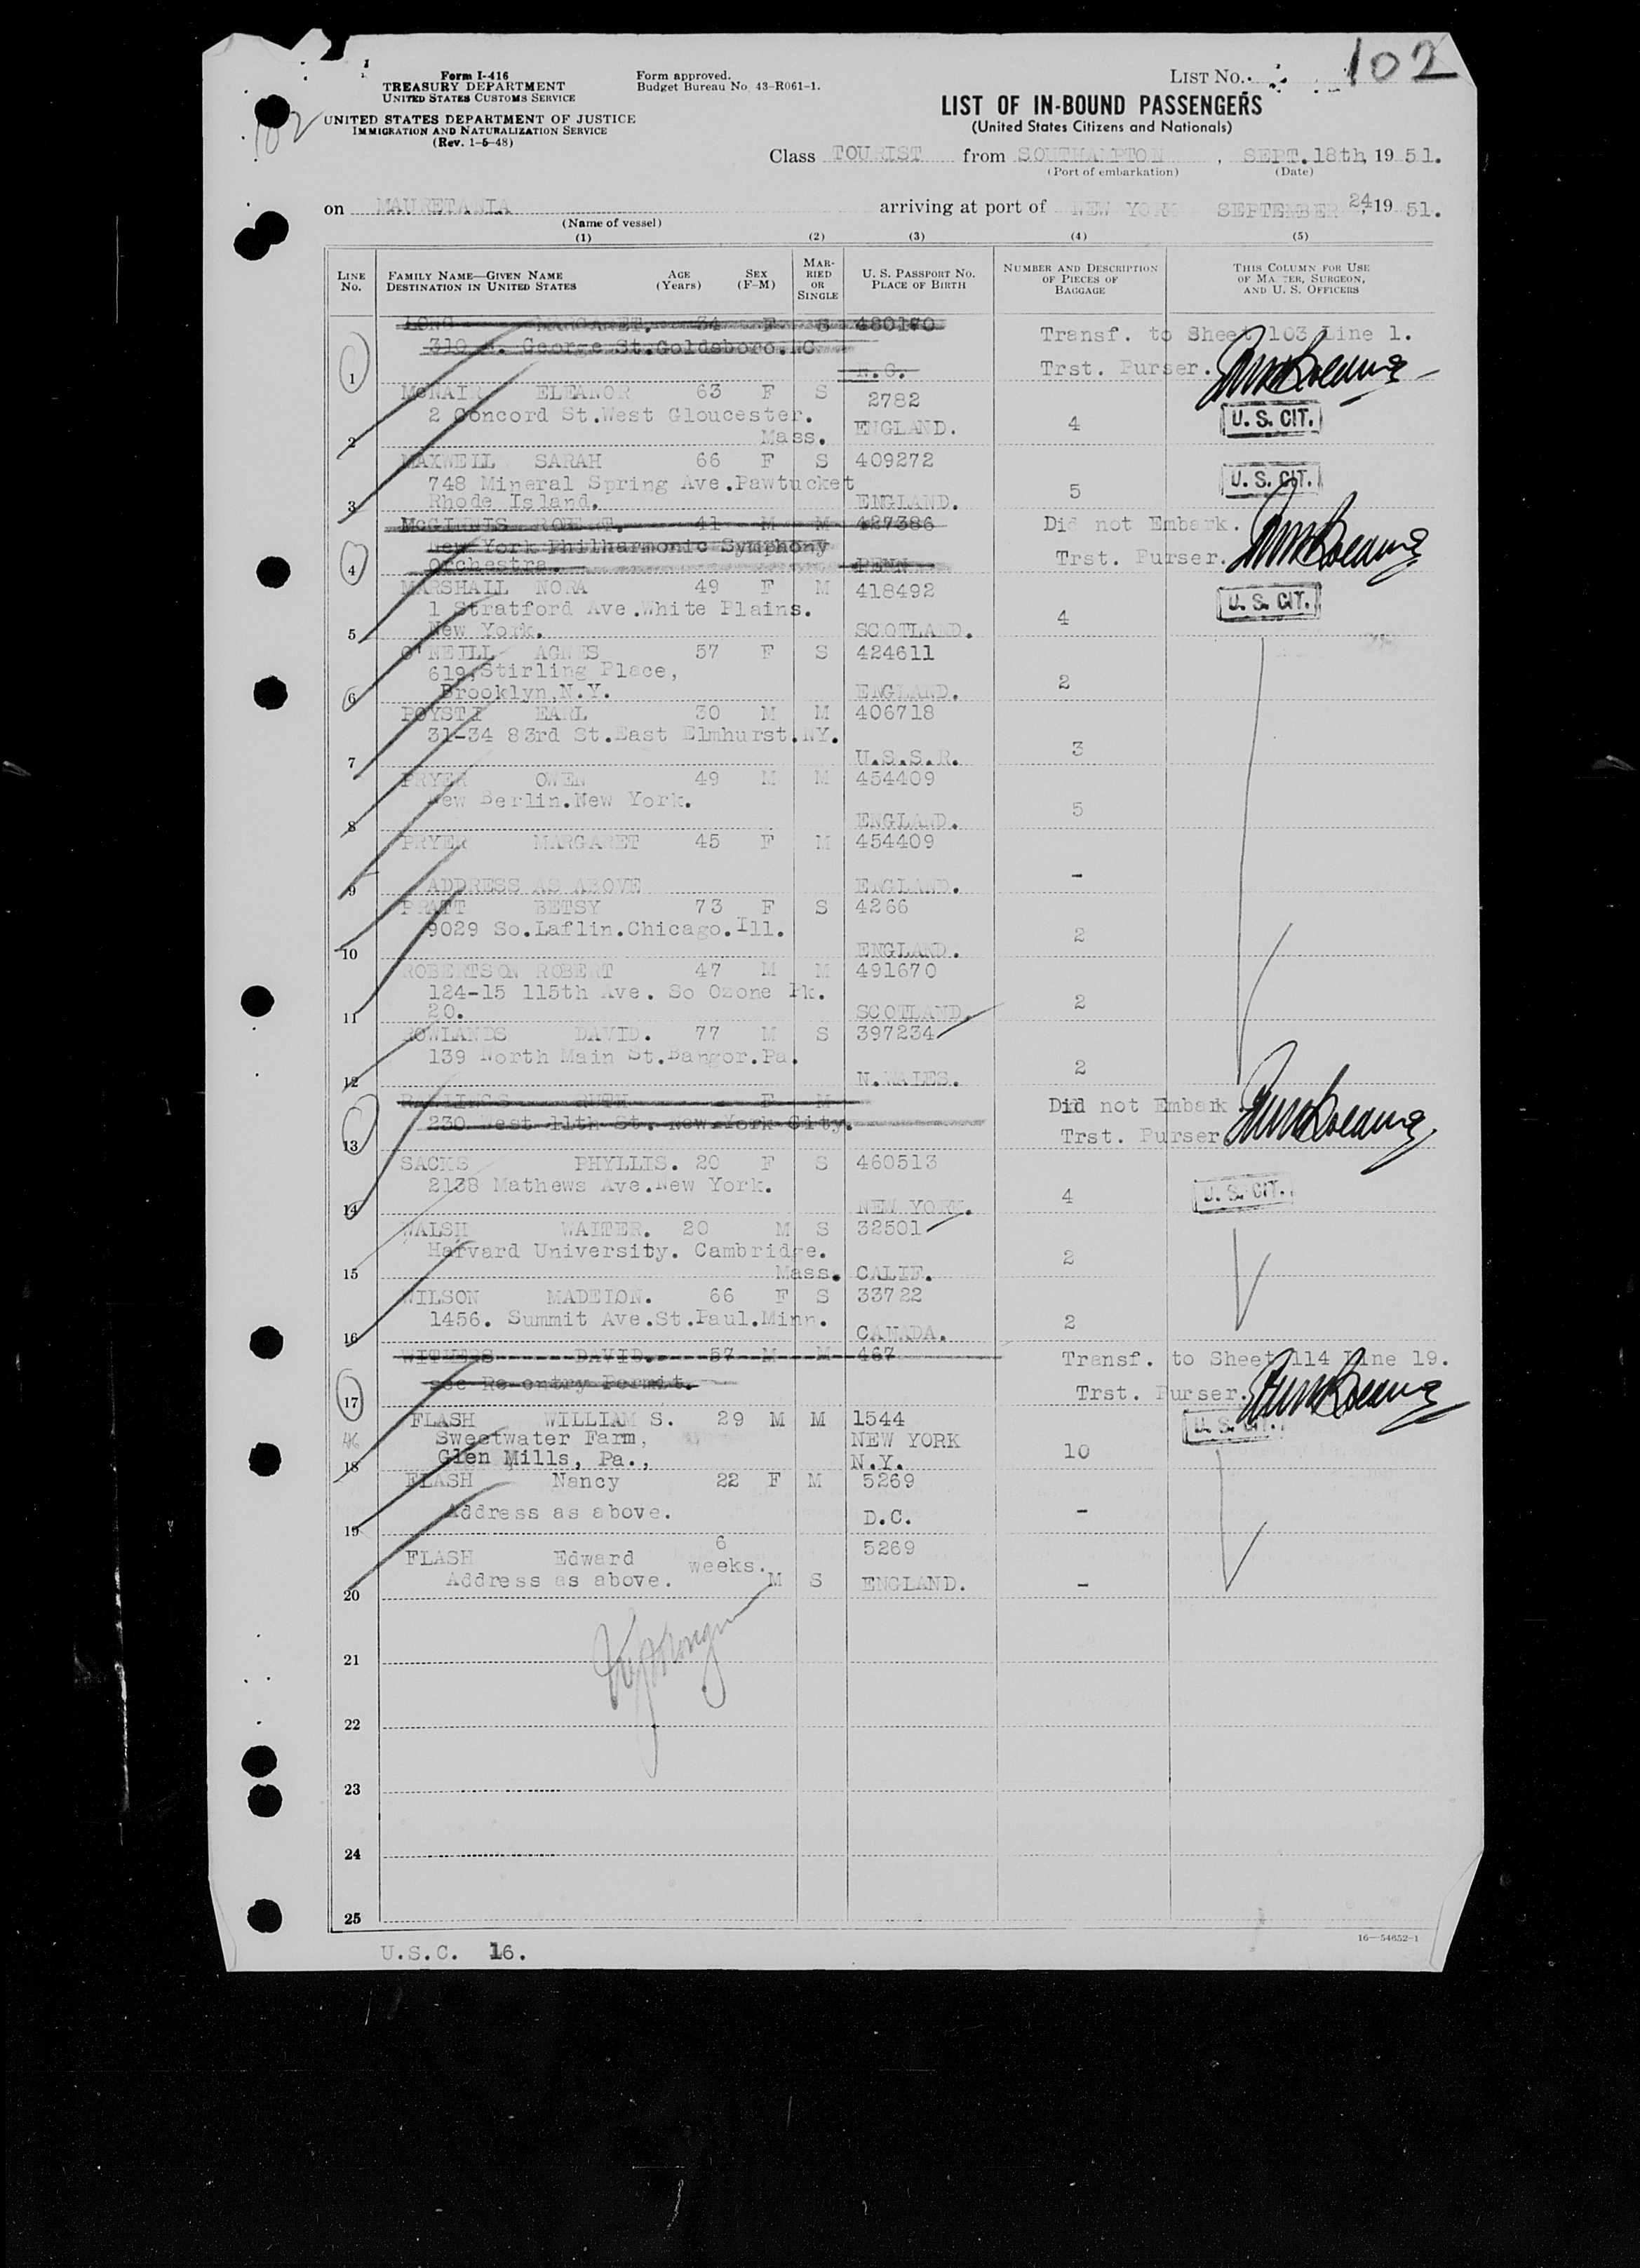 102
Form I-416
TREASURY DEPARTMENT
UNITED STATES CUSTOMS SERVICE
UNITED STATES DEPARTMENT OF JUSTICE
IMMIGRATION AND NATURALIZATION SERVICE
(Rev. 1-5-48)
Form approved.
Budget Bureau No. 43-R061-1.
LIST No. 102
LIST OF IN-BOUND PASSENGERS
(United States Citizens and Nationals)
Class TOURIST from SOUTHAMPTON, SEPT. 18th, 1951.
(Port of embarkation) (Date)
on MAURETANIA arriving at port of NEW YORK SEPTEMBER 24, 1951.
(Name of vessel)
(1) (2) (3) (4) (5)
LINE No. FAMILY NAME—GIVEN NAME DESTINATION IN UNITED STATES AGE (Years) SEX (F-M) MARRIED OR SINGLE U. S. PASSPORT No. PLACE OF BIRTH NUMBER AND DESCRIPTION OF PIECES OF BAGGAGE THIS COLUMN FOR USE OF MASTER, SURGEON, AND U. S. OFFICERS
LONG MARGARET. 34 F S 480170 Transf. to Sheet 103 Line 1.
310 George St.Goldsboro.NC
1 N.C. Trst. Purser.
McNAIR ELEANOR 63 F S 2782
2 Concord St.West Gloucester.
2 Mass. ENGLAND. 4 U. S. CIT.
MAXWELL SARAH 66 F S 409272
748 Mineral Spring Ave.Pawtucket
3 Rhode Island. ENGLAND. 5 U. S. CIT.
McGINNIS ROBERT. 41 M M 427386 Did not Embark.
New York Philharmonic Symphony
4 Orchestra. PENN Trst. Purser.
MARSHALL NORA 49 F M 418492 U. S. CIT.
1 Stratford Ave.White Plains.
5 New York. SCOTLAND. 4
O'NEILL AGNES 57 F S 424611
619, Stirling Place,
6 Brooklyn,N.Y. ENGLAND. 2
POYSTI EARL 30 M M 406718
31-34 83rd St.East Elmhurst.NY.
7 U.S.S.R. 3
PRYER OWEN 49 M M 454409
New Berlin.New York.
8 ENGLAND. 5
PRYER MARGARET 45 F M 454409
9 ADDRESS AS ABOVE ENGLAND. -
PRATT BETSY 73 F S 4266
9029 So.Laflin.Chicago.Ill.
10 ENGLAND. 2
ROBERTSON ROBERT 47 M M 491670
124-15 115th Ave. So Ozone Pk.
11 20. SCOTLAND. 2
ROWLANDS DAVID. 77 M S 397234
139 North Main St.Bangor.Pa.
12 N.WALES. 2
RAWLINGS RUTH F M Did not Embark
230 West 11th St. New York City.
13 Trst. Purser
SACKS PHYLLIS. 20 F S 460513
2138 Mathews Ave.New York.
14 NEW YORK. 4 U. S. CIT.
WALSH WALTER. 20 M S 32501
Harvard University. Cambridge.
15 Mass. CALIF. 2
WILSON MADELON. 66 F S 33722
1456. Summit Ave.St.Paul.Minn.
16 CANADA. 2
WITHERS DAVID. 57 M M 467 Transf. to Sheet 114 Line 19.
see Re-entry Permit.
17 Trst. Purser.
FLASH WILLIAM S. 29 M M 1544 U. S. CIT.
Sweetwater Farm, NEW YORK
18 Glen Mills, Pa., N.Y. 10
FLASH Nancy 22 F M 5269
19 Address as above. D.C. -
FLASH Edward 6 weeks. 5269
20 Address as above. M S ENGLAND. -
21
22
23
24
25
16—54652-1
U.S.C. 16.